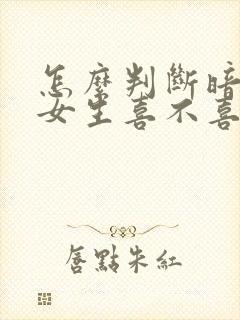 怎麼判斷暗
女生喜不喜
唇點朱紅